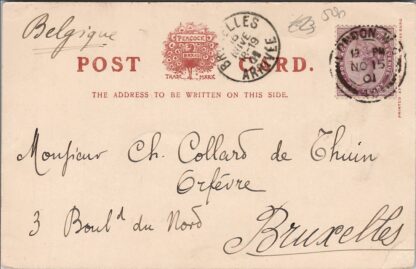 Belgique
590
PEACOCK
BRAND
TRADE MARK
POST CARD.
BRUXELLES
ARRIVÉE
LONDON.W.
12 PM
NO 15
01
THE ADDRESS TO BE WRITTEN ON THIS SIDE.
Monsieur Ch. Collard de Thuin
Orfèvre
3 Boulᵈ du Nord
Bruxelles